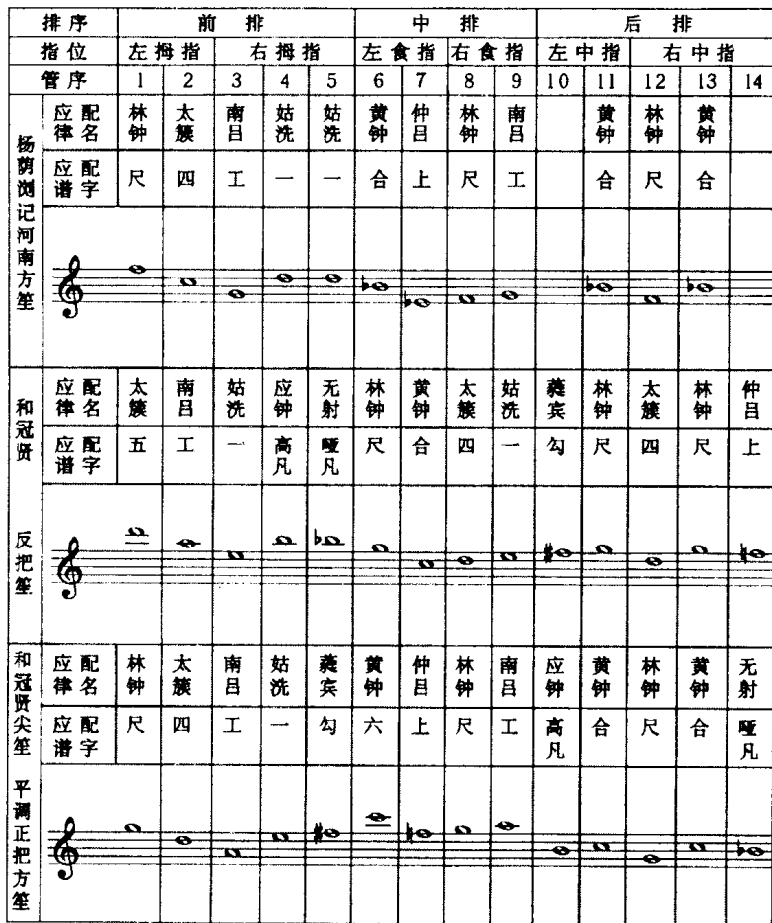 排序 前排 中排 后排
指位 左拇指 右拇指 左食指 右食指 左中指 右中指
管序 1 2 3 4 5 6 7 8 9 10 11 12 13 14
杨荫浏记河南方笙
应配律名 林钟 太簇 南吕 姑洗 姑洗 黄钟 仲吕 林钟 南吕 黄钟 林钟 黄钟
应配谱字 尺 四 工 一 一 合 上 尺 工 合 尺 合
和冠贤 反把笙
应配律名 太簇 南吕 姑洗 应钟 无射 林钟 黄钟 太簇 姑洗 蕤宾 林钟 太簇 林钟 仲吕
应配谱字 五 工 一 高凡 哑凡 尺 合 四 一 勾 尺 四 尺 上
和冠贤尖笙 平调正把方笙
应配律名 林钟 太簇 南吕 姑洗 蕤宾 黄钟 仲吕 林钟 南吕 应钟 黄钟 林钟 黄钟 无射
应配谱字 尺 四 工 一 勾 六 上 尺 工 高凡 合 尺 合 哑凡